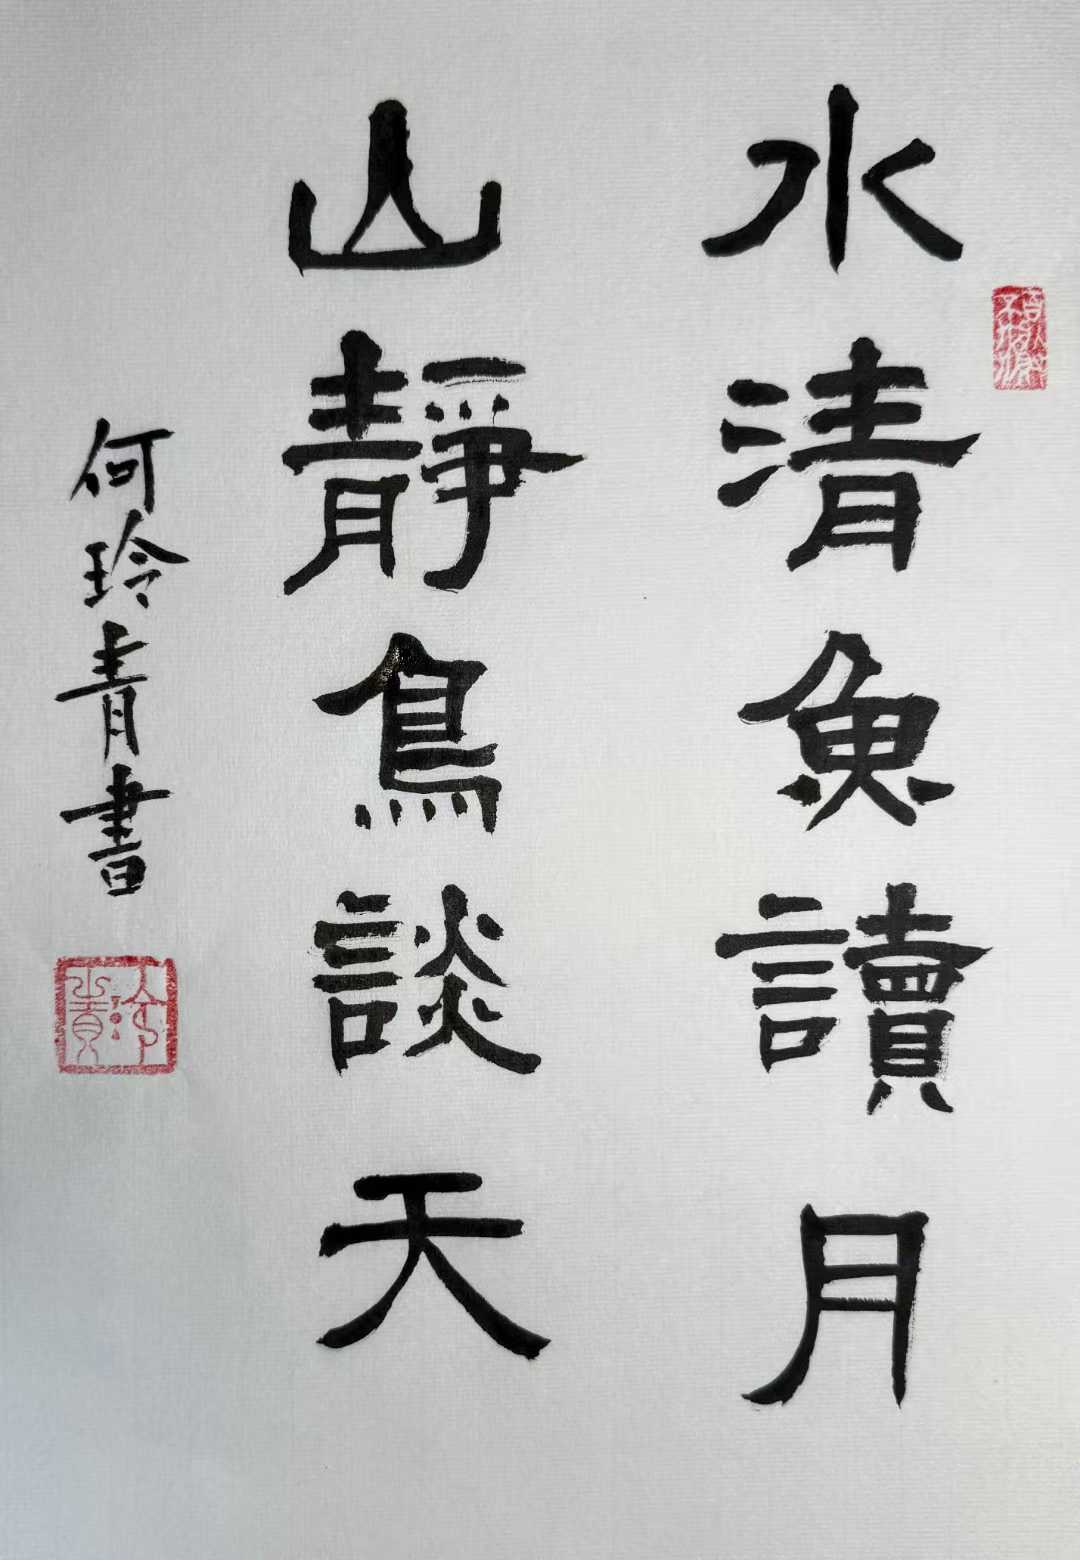 水清魚讀月
山靜鳥談天
何玲青書